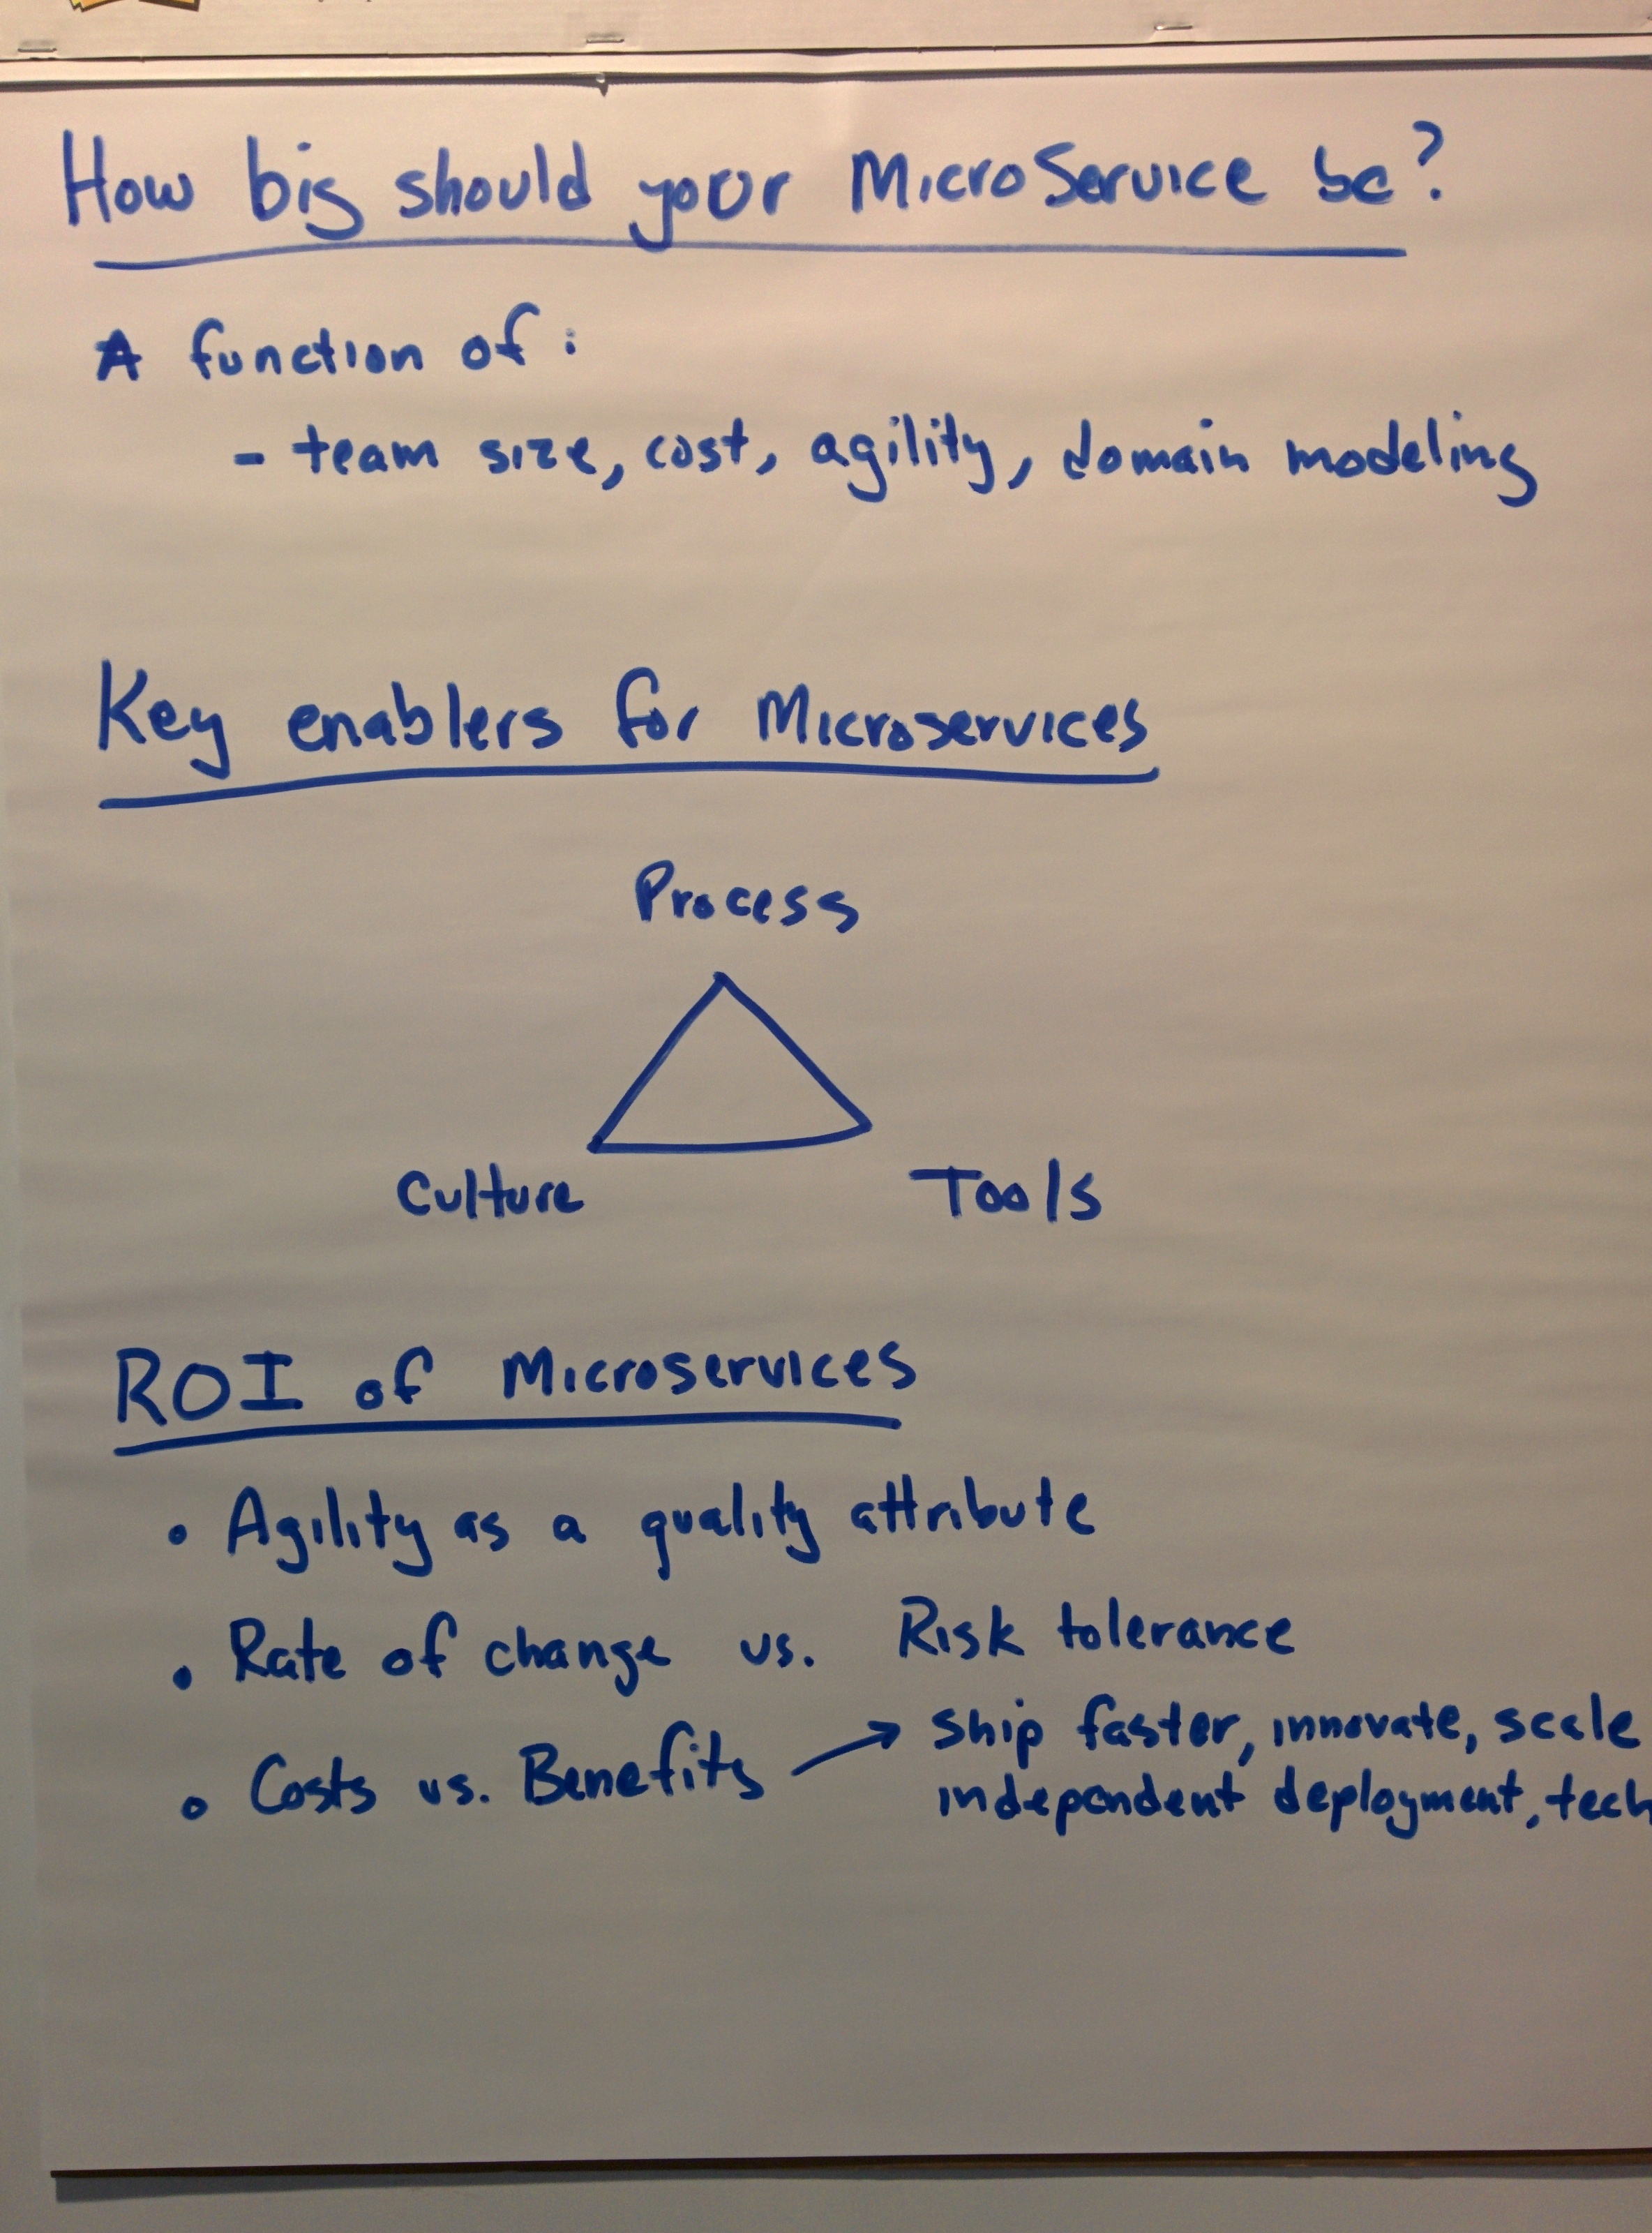 How big should your MicroService be?
A function of:
- team size, cost, agility, domain modeling
Key enablers for Microservices
Process
Culture
Tools
ROI of Microservices
• Agility as a quality attribute
• Rate of change vs. Risk tolerance
• Costs vs. Benefits → ship faster, innovate, scale
independent deployment, tech